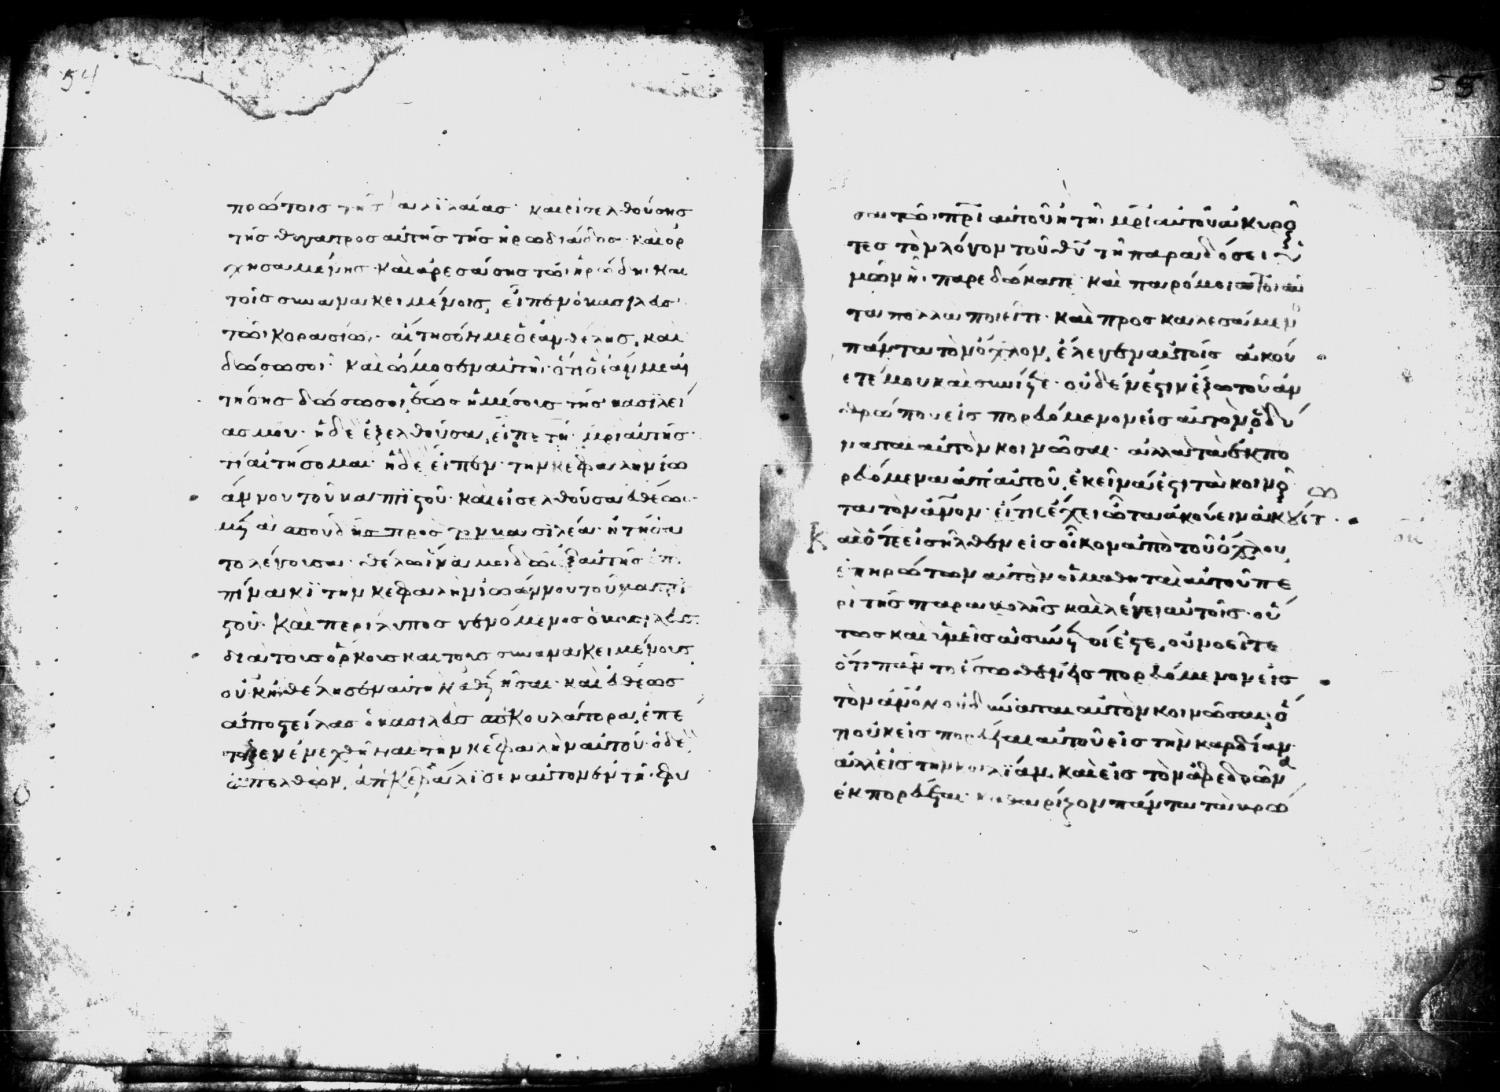 54
πρώτοις τῆς γαλιλαίας· καὶ εἰσελθούσης
τῆς θυγατρος αὐτῆς τῆς ἡρωδιάδος· καὶ ὀρ
χησαμένης· καὶ ἀρεσάσης τῶι ἡρώδηι και
τοῖς συνανακειμένοις, εἶπεν ὁ βασιλεὺς
τῶι κορασίωι· αἴτησόν με ὃ ἐὰν θέλης, καὶ
δώσω σοι· καὶ ὤμοσεν αὐτῆι· ὅτι ὃ ἐάν με αἰ
τήσης δώσω σοι, ἕως ἡμίσους τῆς βασιλεί
ας μου· ἡ δὲ ἐξελθοῦσα, εἶπε τῆ μρι αὐτῆς·
τί αἰτήσομαι· ἡ δὲ εἶπεν· τὴν κεφαλὴν ἰω
άννου τοῦ βαπτϊστοῦ· καὶ εἰσελθοῦσα εὐθέως
μετὰ σπουδῆς προς τὸν βασιλέα· ἠτήσα
το λέγουσα· θέλω ἵνα μοι δῶς ἐξαυτῆς ἐπὶ
πίνακϊ τὴν κεφαλὴν ἰωάννου τοῦ βαπτι
στοῦ· Καὶ περίλυπος γενόμενος ὁ βασιλεὺς
διὰ τοὺς ὅρκους καὶ τοὺς συνανακειμένους
οὐκ ἠθέλησεν αὐτὴν ἀθετῆσαι· καὶ εὐθέως
ἀποστείλας ὁ βασιλεὺς σπεκουλάτορα, ἐπέ
ταξεν ἐνεχθῆναι τὴν κεφαλὴν αὐτοῦ· ὁ δὲ
ἀπελθὼν, ἀπεκεφάλισεν αὐτὸν ἐν τῆ φυ
55
σαι τῶι πρι αὐτοῦ ἢ τῆι μρι αὐτοῦ ἀκυροῦν
τες τὸν λόγον τοῦ θυ τῆ παραδόσει ὑ
μῶν ἧι παρεδώκατε· καὶ παρόμοια τοιαῦ
τα πολλα ποιεῖτε· καὶ προσκαλεσάμεν
πάντα τὸν ὄχλον, ἔλεγεν αὐτοῖς ἀκού
ετέ μου καὶ συνίετε· οὐδέν ἐστιν ἔξω τοῦ ἀν
θρώπου εἰσπορευόμενον εἰς αὐτὸν, ὃ δύ
ναται αὐτὸν κοινῶσαι· ἀλλα τὰ ἐκπο
ρευόμενα ἀπ αὐτοῦ, ἐκεῖνά ἐστι τὰ κοινοῦν
τα τὸν ἄνον· εἴ τις ἔχει ὦτα ἀκούειν ἀκουέτω
Καὶ ὅτε εἰσῆλθεν εἰς οἶκον ἀπὸ τοῦ ὄχλου,
ἐπηρώτων αὐτὸν οἱ μαθηταὶ αὐτοῦ πε
ρὶ τῆς παραβολῆς καὶ λέγει αὐτοῖς· οὕ
τως και ὑμεῖς ἀσύνετοί ἐστε, οὐ νοεῖτε
ὅτι πᾶν τὸ ἔξωθεν εἰσπορευόμενον εἰς
τὸν ἄνον οὐ δύναται αὐτὸν κοινῶσαι· ὅ
τι οὐκ εἰσπορεύεται αὐτοῦ εἰς τὴν καρδίαν
ἀλλ εἰς τὴν κοιλϊαν, καὶ εἰς τὸν ἀφεδρῶνα
ἐκπορεύεται· καθαρίζον πάντα τὰ βρώ